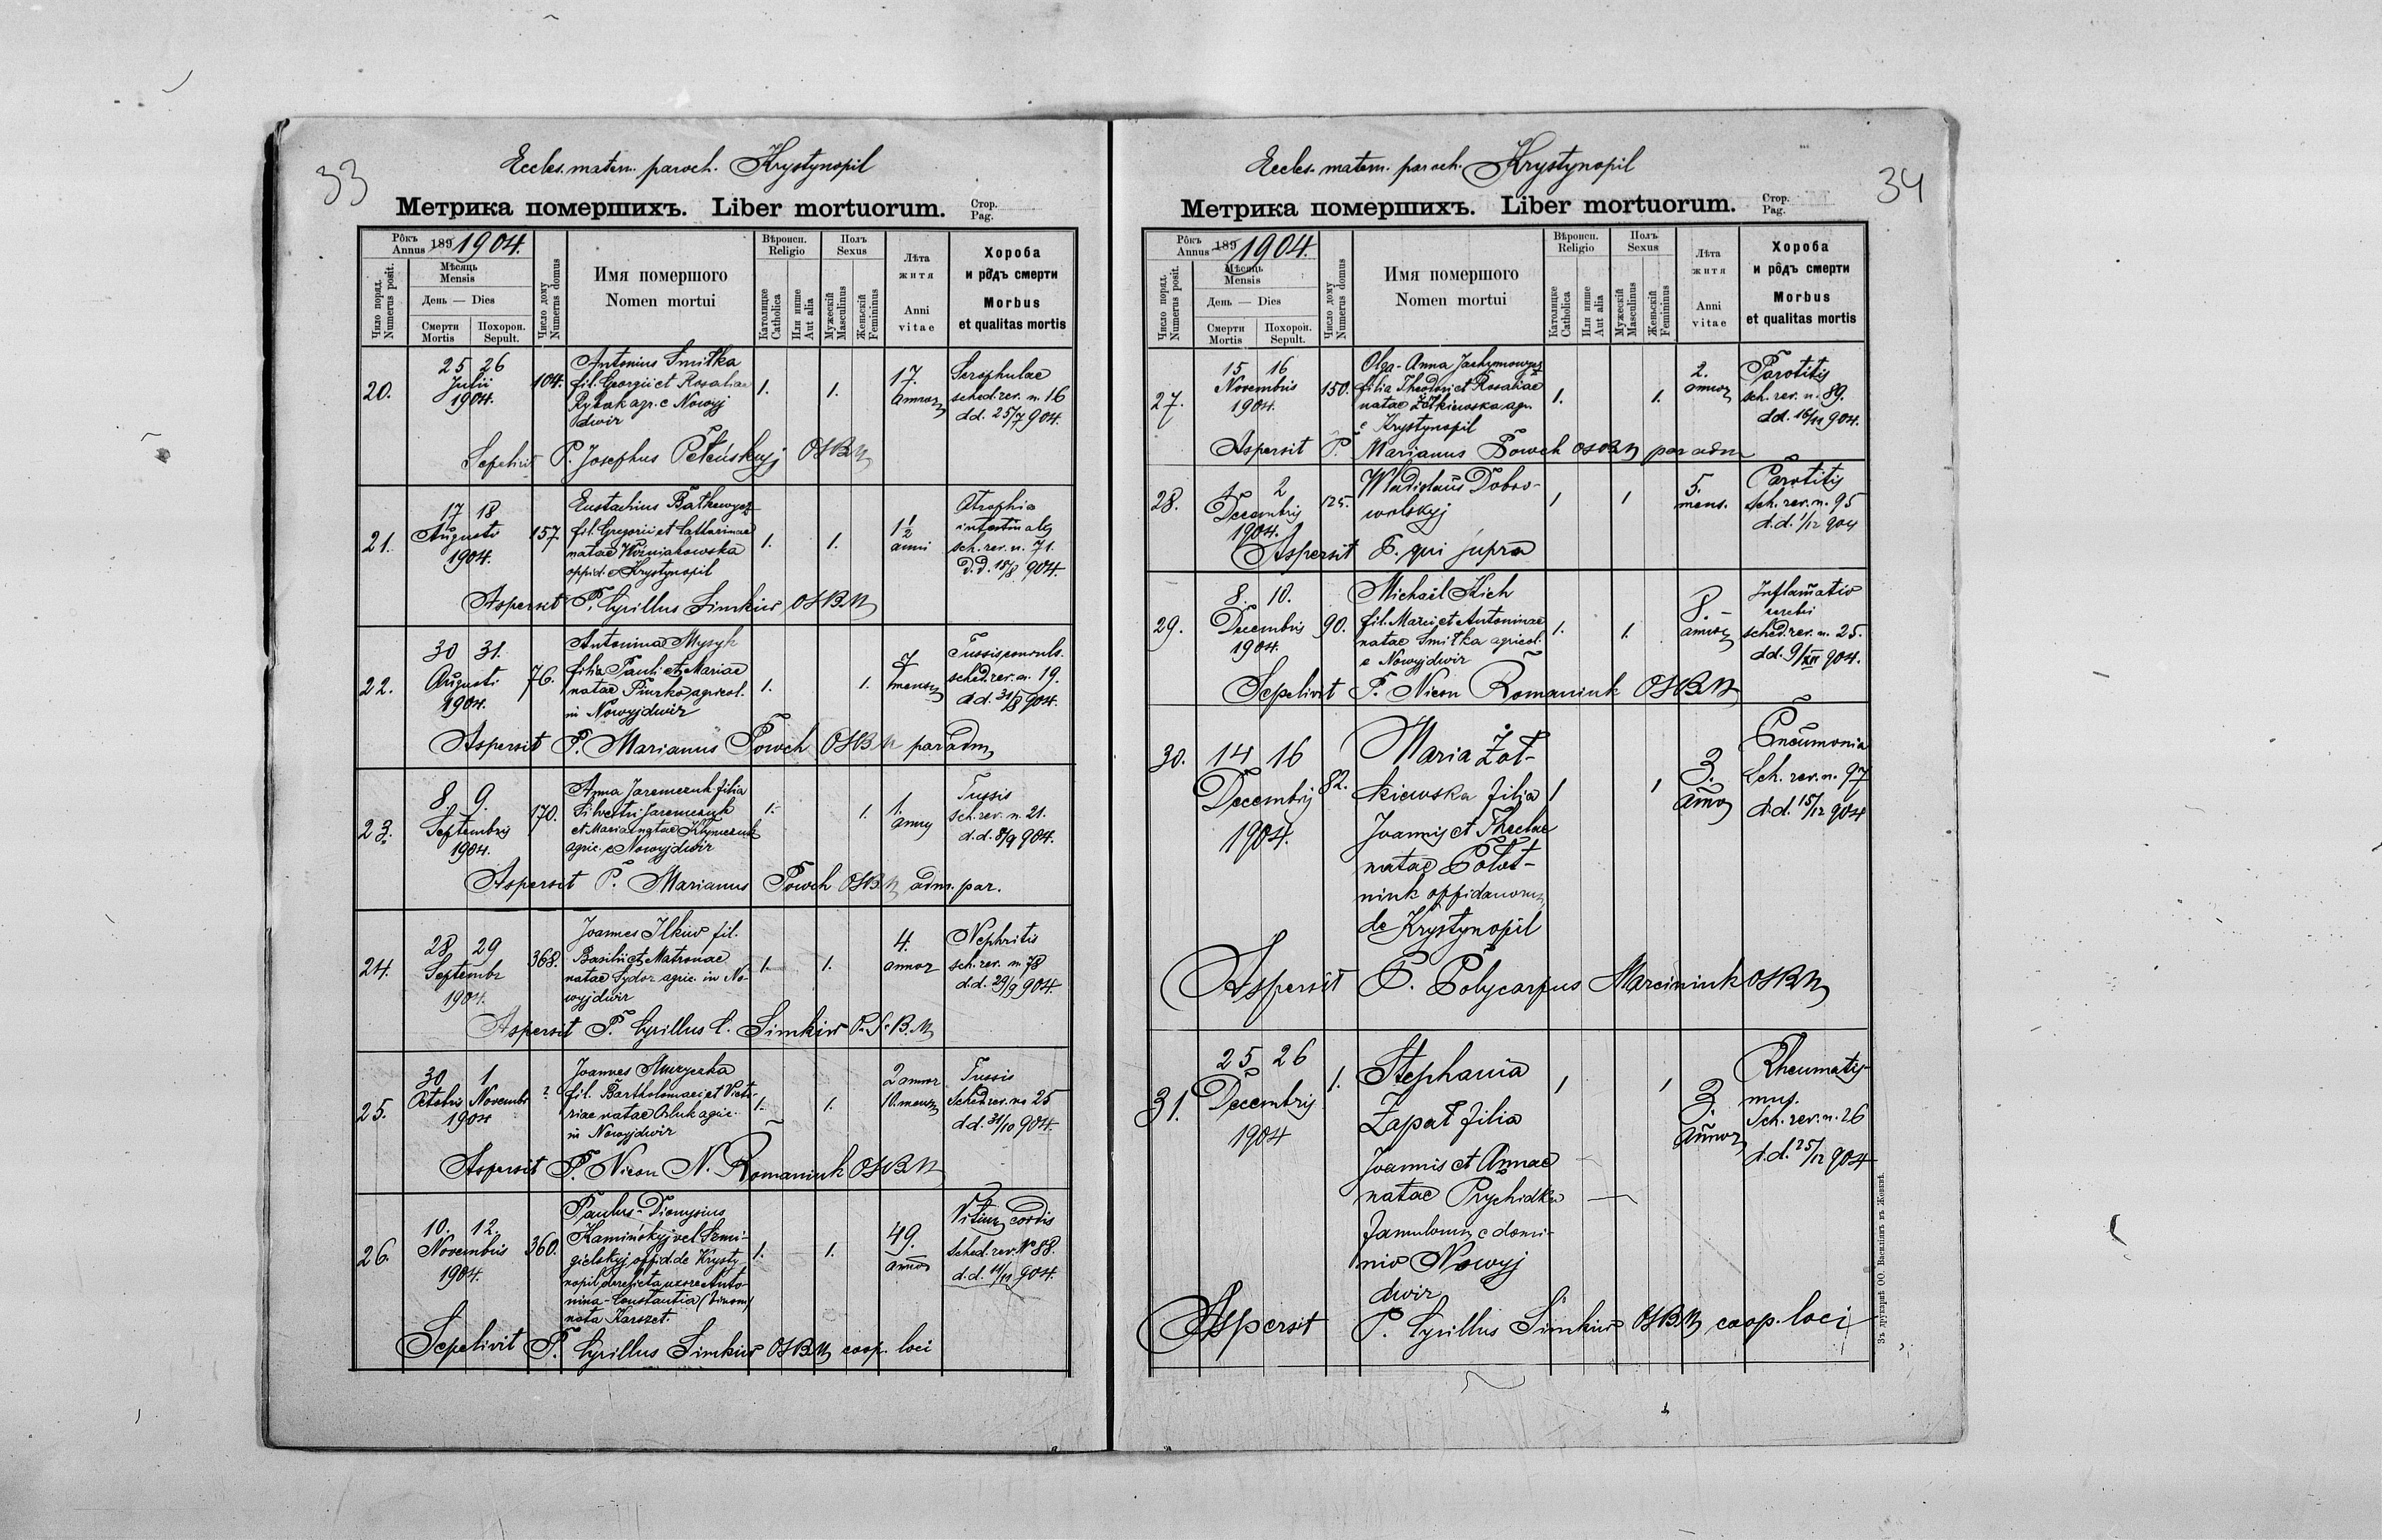 33
Eccles. matern. paroch. Krystynopil
Метрика помершихъ. Liber mortuorum.
Стор.
Pag.
Рôкъ
Annus 189 1904.
Число поряд.
Numerus posit.
Мѣсяць
Mensis
День — Dies
Смерти
Mortis
Похорон.
Sepult.
Число дому
Numerus domus
Имя помершого
Nomen mortui
Вѣроисп.
Religio
Католицке
Catholica
Или инше
Aut alia
Полъ
Sexus
Мужескій
Masculinus
Женьскій
Femininus
Лѣта
житя
Anni
vitae
Хороба
и рôдъ смерти
Morbus
et qualitas mortis
20.
25 26
Julii
1904.
104.
Antonius Smitka
fil. Georgii et Rosaliae
Rybak agr. e Nowyj
dwir
1.
1.
17.
annor
Scrophulae
sched. rev. n. 16
d.d. 25/7 904.
Sepelivit P. Josephus OSBM
21.
17 18
Augusti
1904.
157
Eustachius
fil. Gregorii et Catharinae
natae Woźniakowska
oppid. e Krystynopil
1.
1.
1 1/2
anni
Atrophia
intestinalis
sch. rev. n. 71.
d.d. 18/8 904.
Aspersit P. Cyrillus Simkiw OSBM
22.
30 31.
Augusti
1904.
76.
Antonina Mysyk
filia Pauli et Mariae
natae Piurko agricol.
in Nowyjdwir
1.
1.
7
mens
Tussis convuls.
sched. rev. n. 19.
d.d. 31/8 904.
Aspersit P. Marianus Powch OSBM par adm
23.
8. 9.
Septembris
1904.
170.
Anna Jaremczuk filia
Silvestri Jaremczuk
et Mariae natae Klymczuk
agric. e Nowyjdwir
1.
1.
1.
Tussis
sch. rev. n. 21.
d.d. 8/9 904.
Aspersit P. Marianus Powch OSBM adm. par.
24.
28 29
Septembr
1904.
368.
Joannes Ilkiw fil.
Basilii et Matronae
natae Sydor agric. in No-
wyjdwir
1.
1.
4.
annor
Nephritis
sch. rev. n. 78
d.d. 29/9 904.
Aspersit P. Cyrillus C. Simkiw O.S.B.M
25.
30 1
Octobris Novembr
1904
?
Joannes Muzyczka
fil. Bartholomaei et Victo-
riae natae agric.
in Nowyjdwir
1.
1.
2 annor
10. mens
Tussis
Sched. rev. no 25
d.d. 31/10 904.
Aspersit P. Nicon N. Romaniuk OSBM
26.
10. 12.
Novembris
1904.
360.
Paulus-Dionysius
Kamińskyj vel Szmi-
gielskyj oppid. de Krysty-
nopil, derelicta uxore Anto-
nina-Constantia
nata Karszet.
1.
1.
49.
annor
Vitium cordis
Sched. rev. No 88.
d.d. 11/11 904.
Sepelivit P. Cyrillus Simkiw OSBM coop. loci
34
Eccles. matern. paroch. Krystynopil
Метрика помершихъ. Liber mortuorum.
Стор.
Pag.
Рôкъ
Annus 189 1904.
Число поряд.
Numerus posit.
Мѣсяць
Mensis
День — Dies
Смерти
Mortis
Похорон.
Sepult.
Число дому
Numerus domus
Имя помершого
Nomen mortui
Вѣроисп.
Religio
Католицке
Catholica
Или инше
Aut alia
Полъ
Sexus
Мужескій
Masculinus
Женьскій
Femininus
Лѣта
житя
Anni
vitae
Хороба
и рôдъ смерти
Morbus
et qualitas mortis
27.
15 16
Novembris
1904.
150.
Olga-Anna Jachymowycz
filia Theodori et Rosaliae
natae Żołkiewska agr.
e Krystynopil
1.
1.
2.
annor
Parotitis
sch. rev. n. 89.
d.d. 16/11 904.
Aspersit P. Marianus Powch OSBM par adm
28.
1 2
Decembris
1904.
125.
Wladislaus Dobro-
wolskyj
1
1
5.
mens.
Parotitis
sch. rev. n. 95
d.d. 1/12 904
Aspersit P. qui supra
29.
8. 10.
Decembris
1904.
90.
Michaël Kich
fil. Marci et Antoninae
natae Smitka agricol.
e Nowyjdwir
1.
1.
8.
annor
Inflam̄atio
cerebri
sched. rev. n. 25.
d.d. 9/XII 904.
Sepelivit P. Nicon Romaniuk OSBM
30.
14 16
Decembris
1904.
82.
Maria Żoł-
kiewska filia
Joannis et Theclae
natae Połot-
niuk oppidanorum
de Krystynopil
1
1
3.
an̄or
Pneumonia
Sch. rev. n. 97
d.d. 15/12 904
Aspersit P. Polycarpus Marciniuk OSBM
31.
25 26
Decembris
1904
1.
Stephania
Zapał filia
Joannis et Annae
natae Prychidko
famulorum e domi-
nio Nowyj
dwir
1
1
3.
an̄or
Rheumatis-
mus.
Sch. rev. n. 26
d.d. 25/12 904
Aspersit P. Cyrillus Simkiw OSBM coop. loci
Зъ друкарнѣ ОО. Василіянъ въ Жовквѣ.